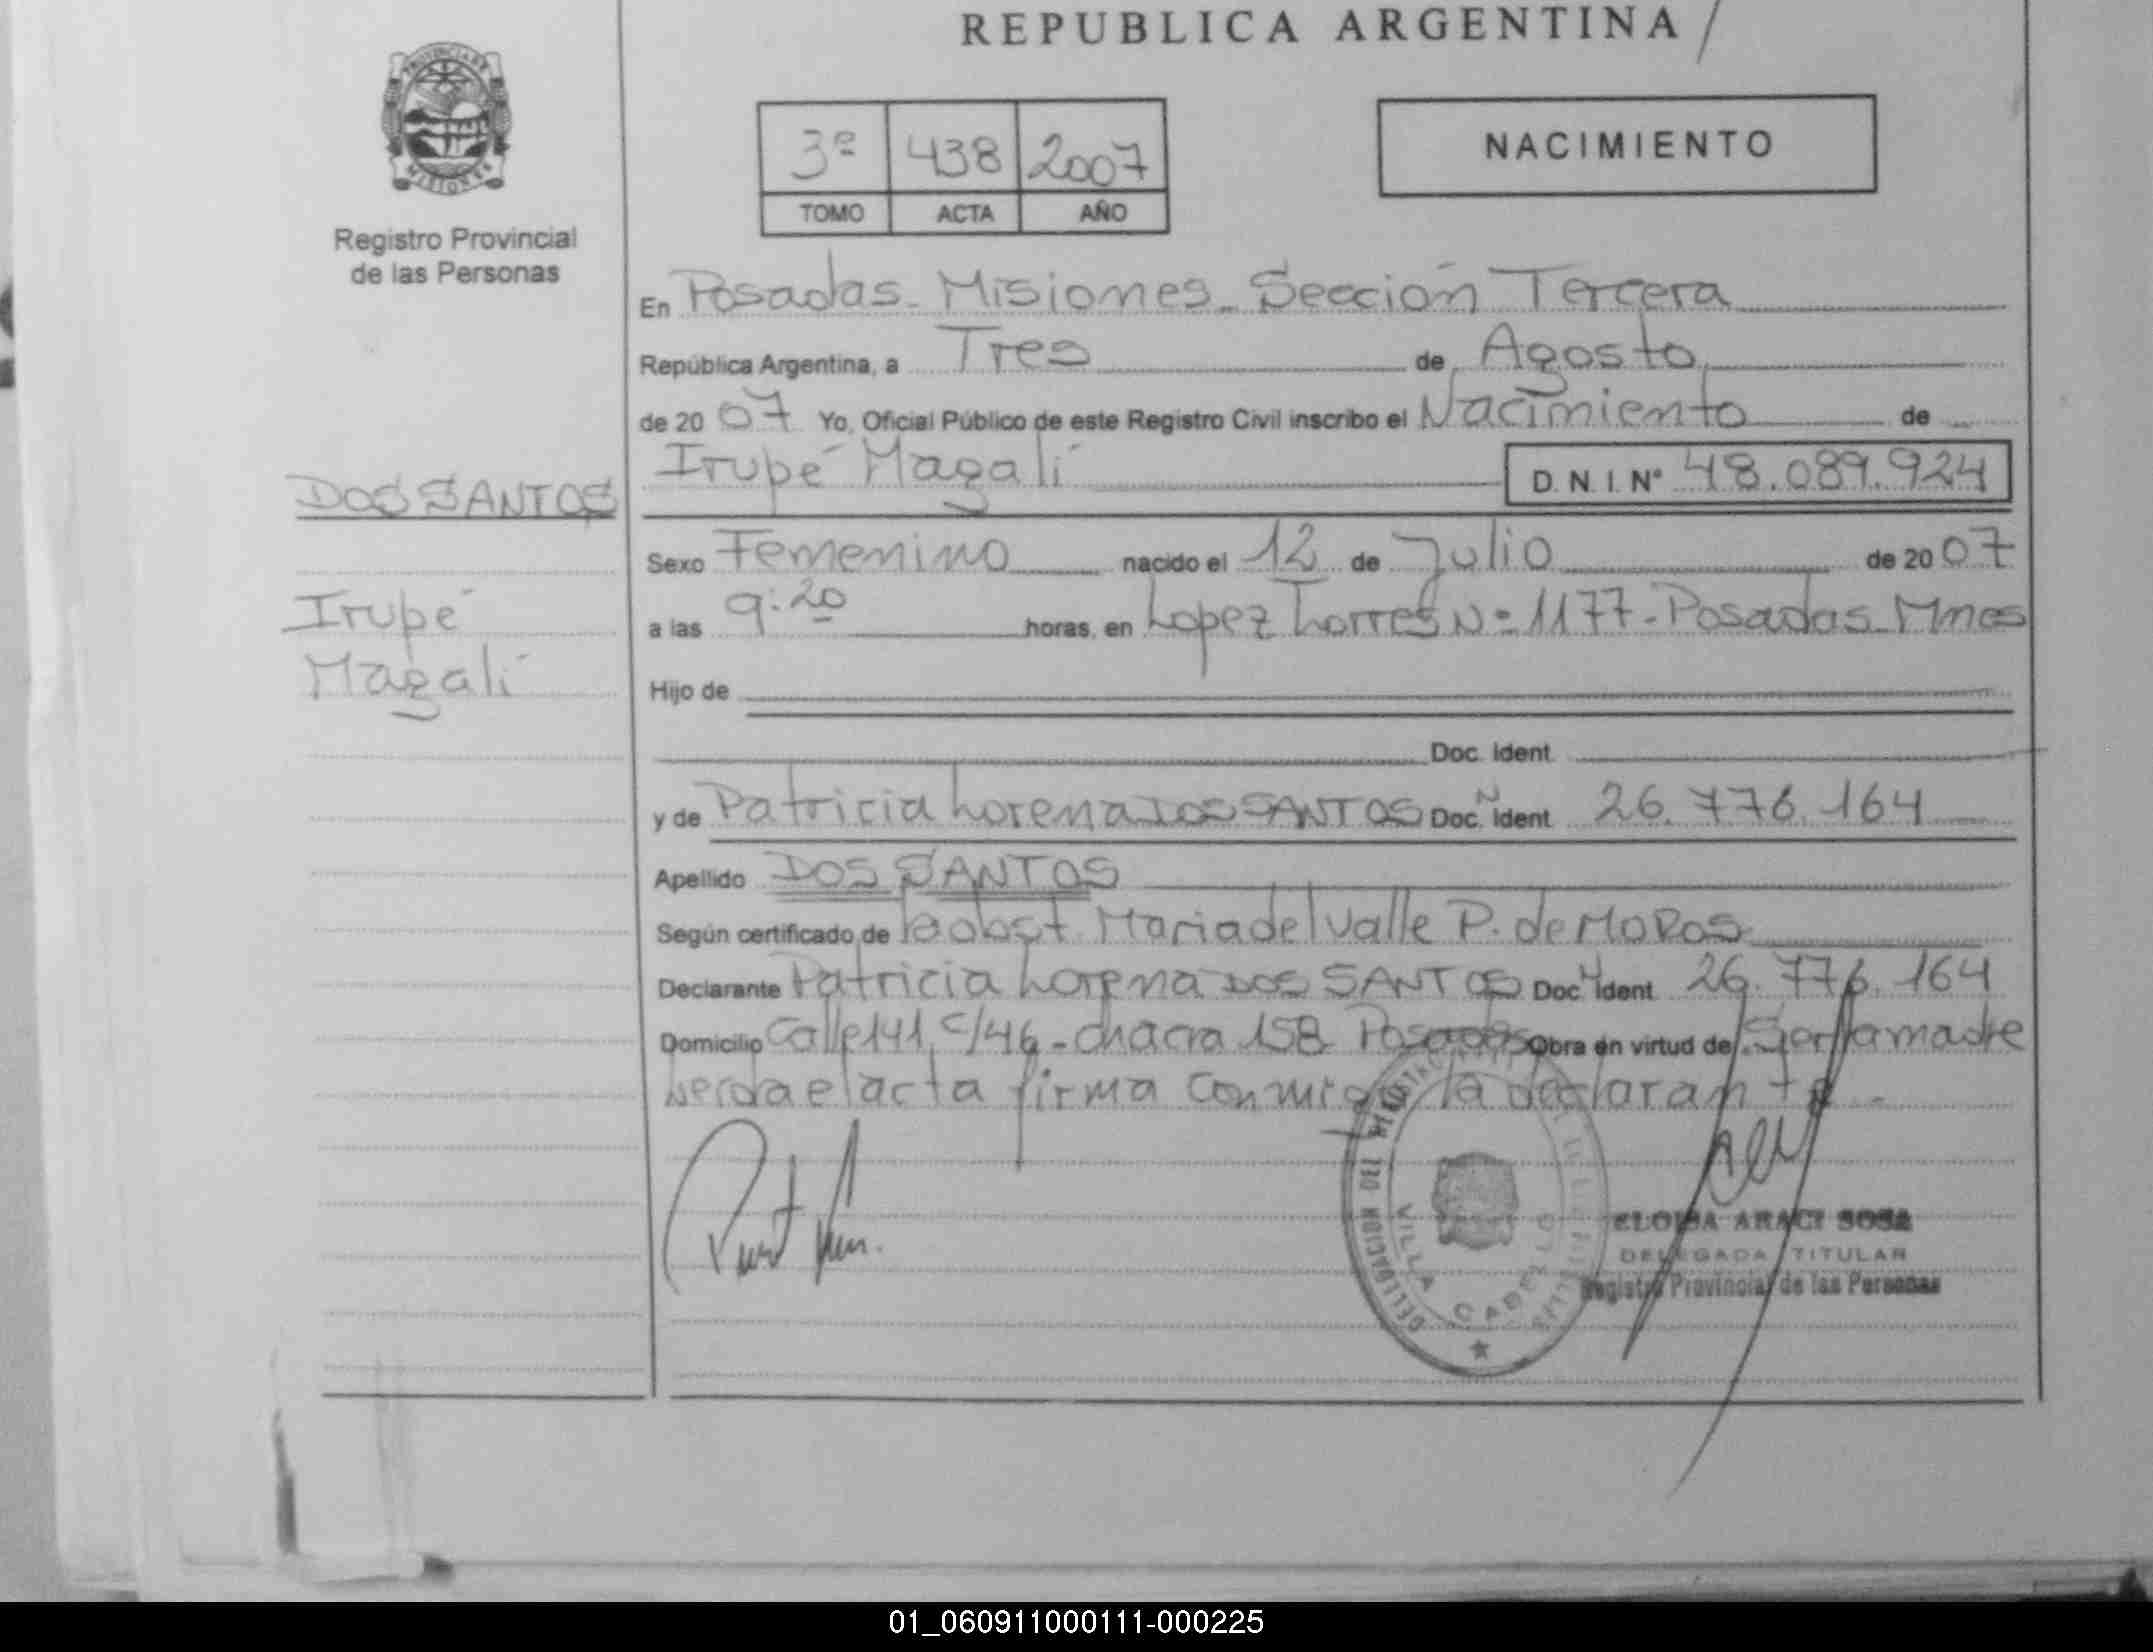 REPUBLICA ARGENTINA
PROVINCIA DE
MISIONES
Registro Provincial
de las Personas
3º 438 2007
TOMO ACTA AÑO
NACIMIENTO
En Posadas - Misiones - Sección Tercera
República Argentina, a Tres de Agosto
de 2007 Yo, Oficial Público de este Registro Civil inscribo el Nacimiento de
DOS SANTOS
Irupé Magalí D.N.I. Nº 48.089.924
Sexo Femenino nacido el 12 de Julio de 2007
Irupé
Magalí
a las 9:20 horas, en Lopez Torres Nº 1177 - Posadas Mnes
Hijo de
Doc. Ident.
y de Patricia Lorena DOS SANTOS Doc. N Ident. 26.776.164
Apellido DOS SANTOS
Según certificado de la obst. Maria del Valle P. de
Declarante Patricia Lorena DOS SANTOS Doc. N Ident. 26.776.164
Domicilio Calle 141 c/46 - chacra 158 Posadas Obra en virtud de Ser la madre
el acta firma conmigo la declarante -
VILLA CABELLO
ELOISA ARACI SOSA
DELEGADA TITULAR
Registro Provincial de las Personas
01_060911000111-000225